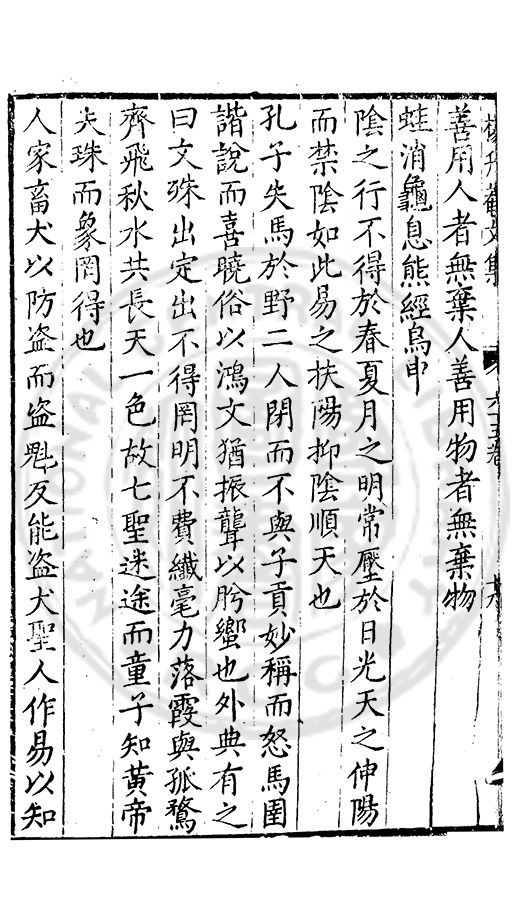 楊升菴文集 六十五卷
善用人者無棄人善用物者無棄物
蛙消龜息熊經鳥申
陰之行不得於春夏月之明常壓於日光天之伸陽
而禁陰如此易之扶陽抑陰順天也
孔子失馬於野二人閉而不與子貢妙稱而怒馬圉
諧說而喜曉俗以鴻文猶振聾以肹蠁也外典有之
曰文殊出定出不得罔明不費纖毫力落霞與孤鶩
齊飛秋水共長天一色故七聖迷途而童子知黃帝
失珠而象罔得也
人家畜犬以防盜而盜魁反能盜犬聖人作易以知